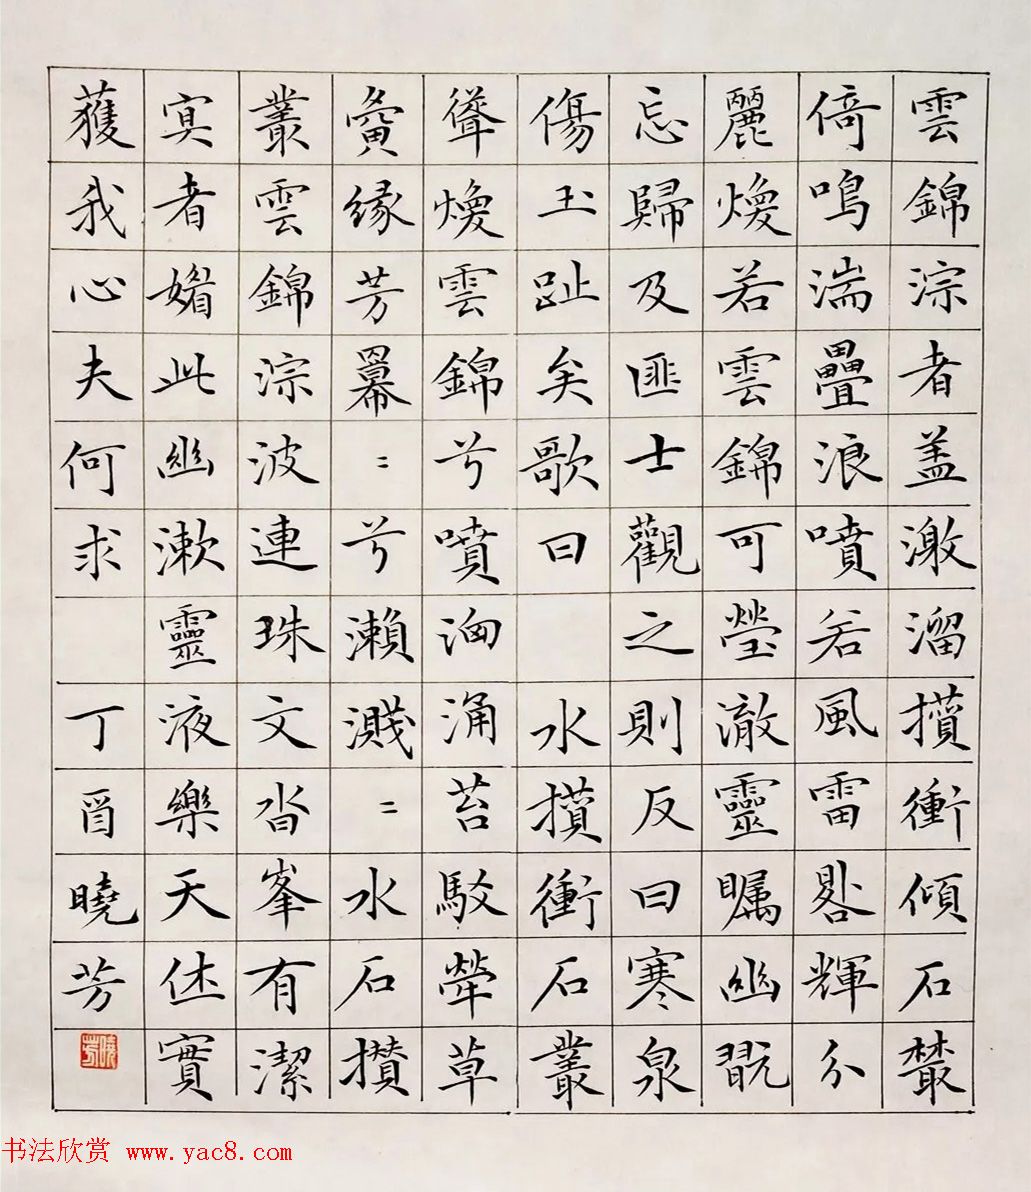 雲錦淙者蓋激溜攢衝傾石樷
倚鳴湍疊浪噴若風雷輝分
麗煥若雲錦可瑩徹靈矚幽翫
忘歸及匪士觀之則反曰寒泉
傷玉趾矣歌曰 水攢衝石叢
聳煥雲錦兮噴洶涌苔駁犖草
夤緣芳冪=兮瀨濺=水石攢
叢雲錦淙波連珠文沓峯有潔
冥者媚此幽漱靈液樂天休實
獲我心夫何求 丁酉曉芳
曉芳
书法欣赏 www.yac8.com